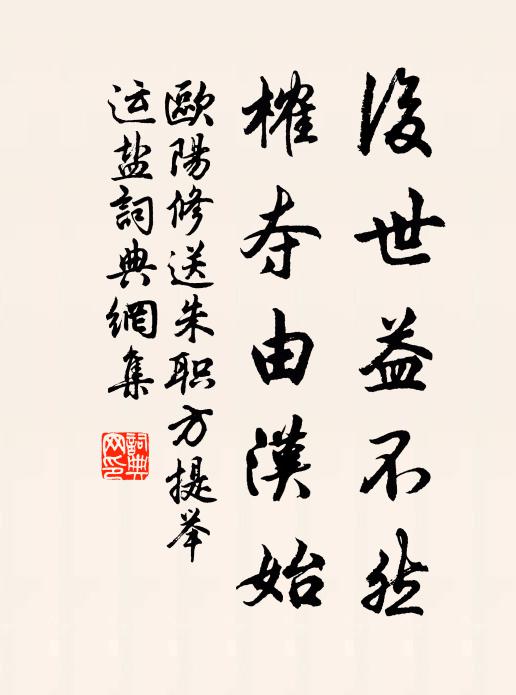 後世益不然
榷夺由漢始
歐陽修送朱职方提举
运盐詞典網集
詞典网印